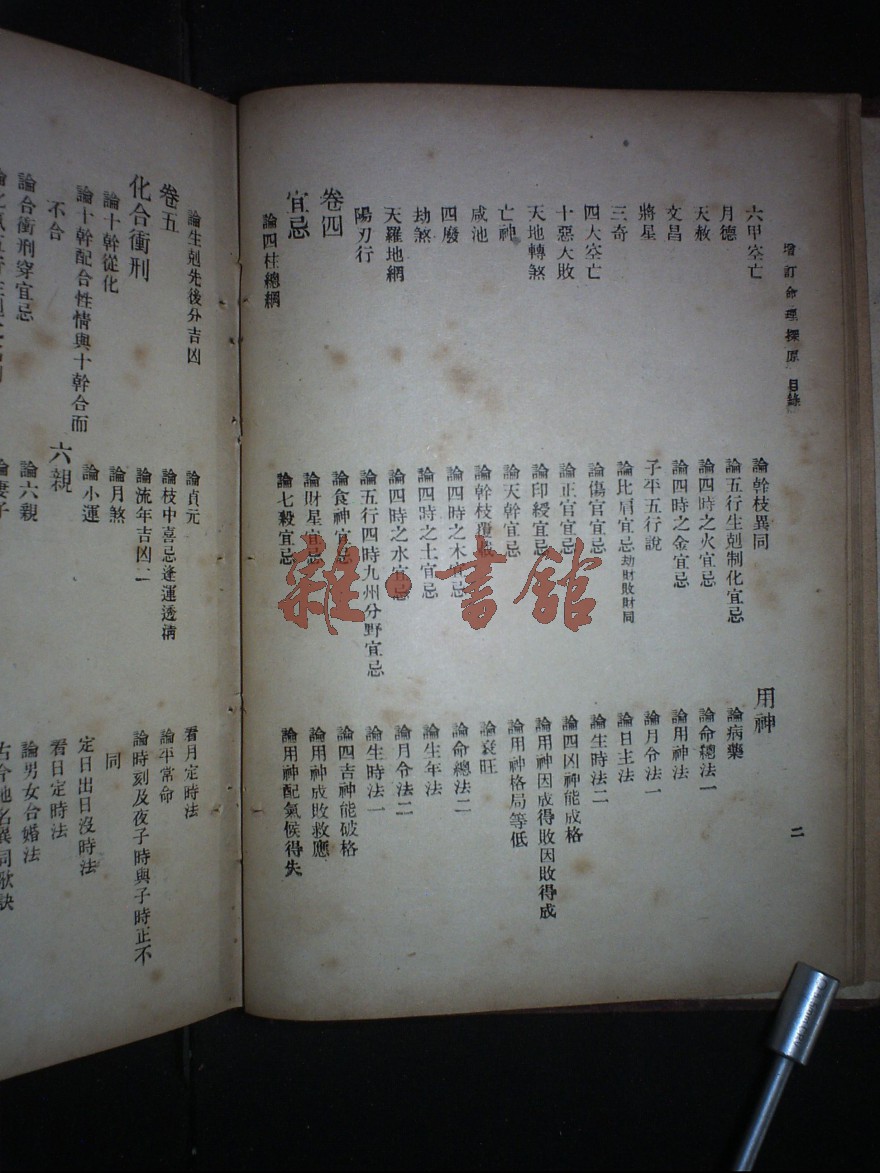 增訂命理探原 目錄
二
六甲空亡
月德
天赦
文昌
將星
三奇
四大空亡
十惡大敗
天地轉煞
亡神
咸池
四廢
劫煞
天羅地網
陽刃行
卷四
宜忌
論四柱總綱
論幹枝異同
論五行生剋制化宜忌
論四時之火宜忌
論四時之金宜忌
子平五行說
論比肩宜忌劫財敗財同
論傷官宜忌
論正官宜忌
論印綬宜忌
論天幹宜忌
論幹枝覆載
論四時之木宜忌
論四時之土宜忌
論四時之水宜忌
論五行四時九州分野宜忌
論食神宜忌
論財星宜忌
論七殺宜忌
用神
論病藥
論命總法一
論用神法
論月令法一
論日主法
論生時法二
論四凶神能成格
論用神因成得敗因敗得成
論用神格局等低
論衰旺
論命總法二
論生年法
論月令法二
論生時法一
論四吉神能破格
論用神成敗救應
論用神配氣候得失
雜·書館
論生剋先後分吉凶
卷五
化合衝刑
論十幹從化
論十幹配合性情與十幹合而
不合
論合衝刑穿宜忌
論貞元
論枝中喜忌逢運透淸
論流年吉凶二
論月煞
論小運
六親
論六親
論妻子
看月定時法
論平常命
論時刻及夜子時與子時正不
同
定日出日沒時法
看日定時法
論男女合婚法
古今地名異同歌訣